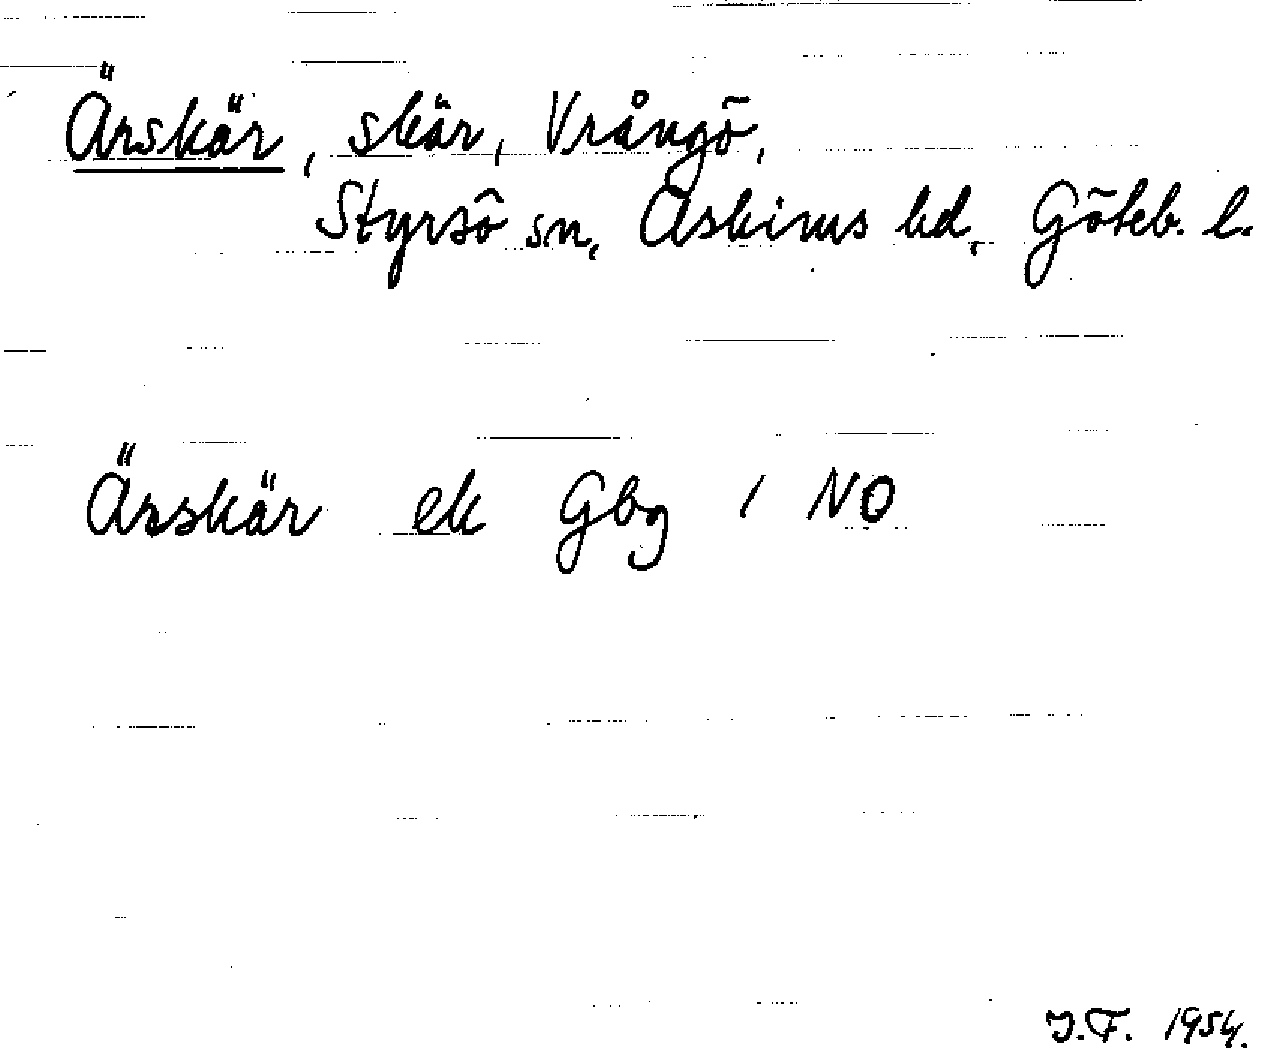 Ärskär, skär, Vrångö,
Styrsö sn, Askims hd, Göteb. l.
Ärskär ek Gbg 1 NO
J.F. 1954.